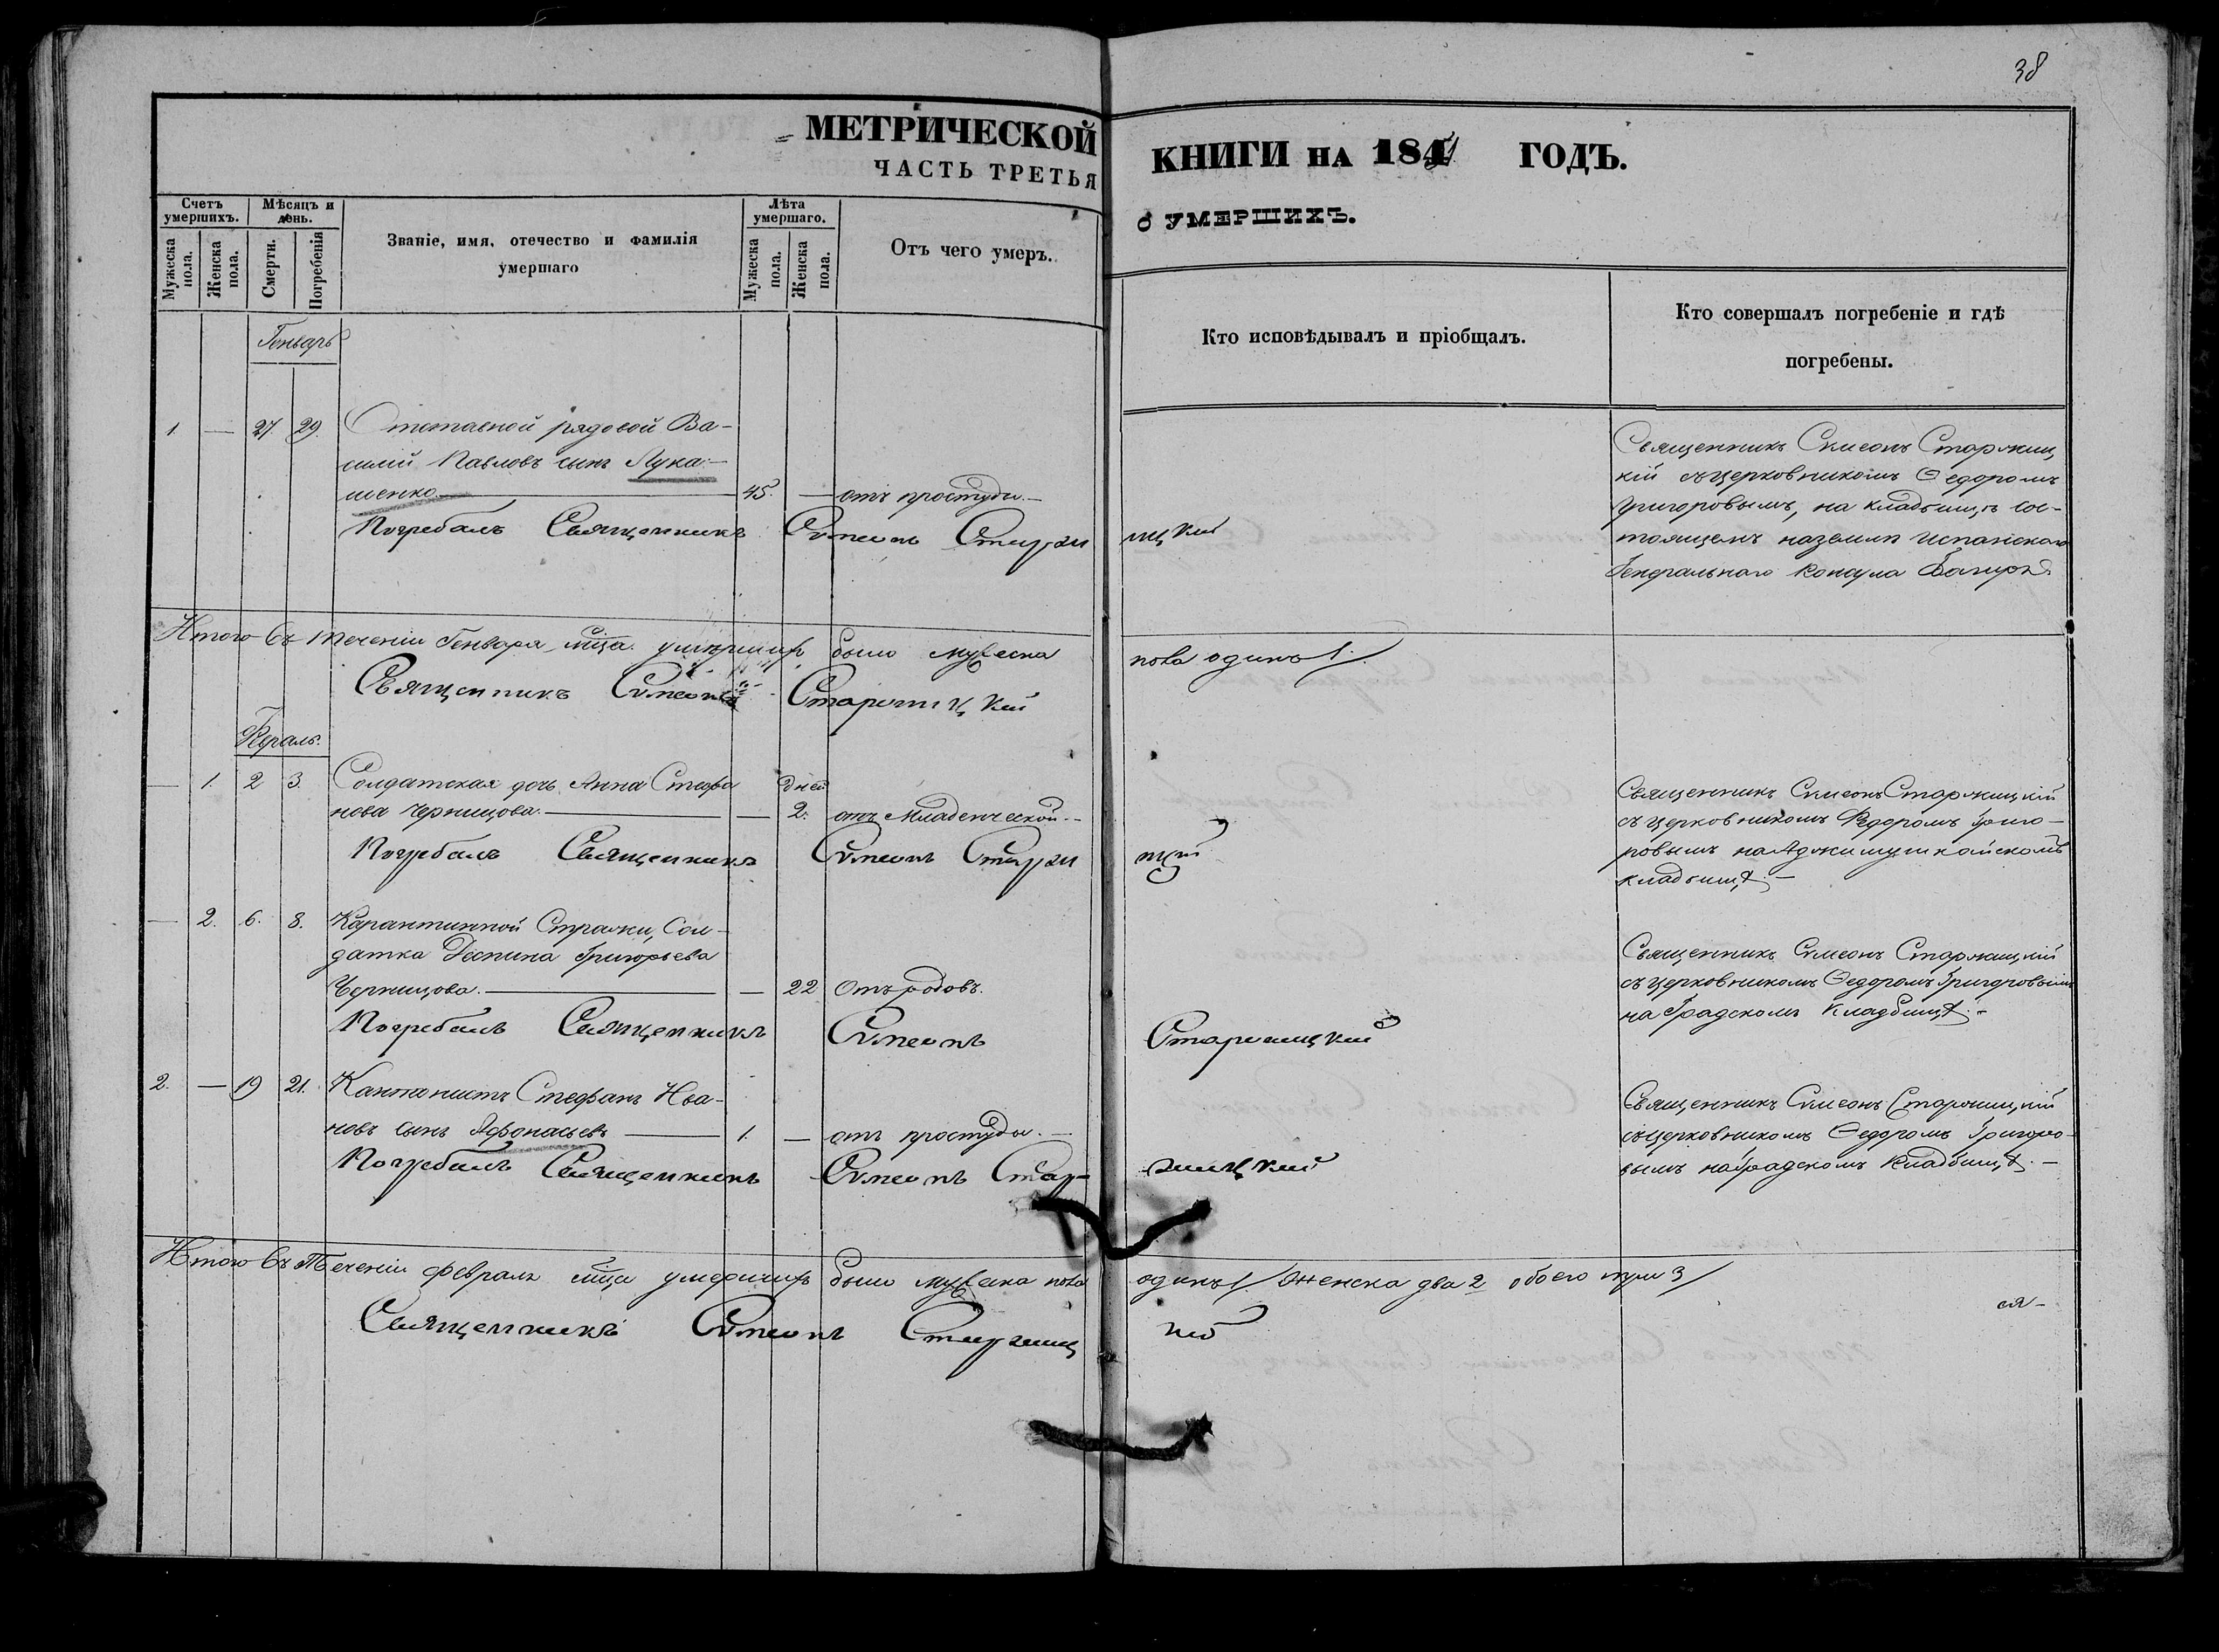 38
МЕТРИЧЕСКОЙ
ЧАСТЬ ТРЕТЬЯ
КНИГИ НА 1851 ГОДЪ.
О УМЕРШИХЪ.
Счетъ умершихъ.
Мужеска пола.
Женска пола.
Мѣсяцъ и день.
Смерти.
Погребенія
Званіе, имя, отечество и фамилія
умершаго
Лѣта умершаго.
Мужеска пола.
Женска пола.
Отъ чего умеръ.
Кто исповѣдывалъ и пріобщалъ.
Кто совершалъ погребеніе и гдѣ
погребены.
Генварь
1. — 27 29. Отставной рядовой Ва-
силій Павловъ сынъ Лука-
шенко 45. — отъ простуды.—
Погребалъ Священникъ Симеонъ Старжи
цкій
Священникъ Симеонъ Старжиц
кій съ церковникомъ Ѳедоромъ
Григоровымъ, на кладбищѣ сос-
тоящемъ на земли испанскаго
Генеральнаго Консула
Итого въ теченіи Генваря мца умершихъ было мужеска
пола одинъ 1.
Священникъ Симеонъ Старжицкій
Февраль.
— 1. 2 3. Солдатская дочь Анна Стефа
нова Черницова. — дней 2. отъ младенческой.—
Погребалъ Священникъ Симеонъ Старжи
цкій
Священникъ Симеонъ Старжицкій
съ церковникомъ Ѳедоромъ Григо-
ровымъ на Аджимушкайскомъ
кладбищѣ.—
— 2. 6. 8. Карантинной Стражи, Сол-
датка Деспина Григорьева
Черницова. — 22 отъ родовъ.
Погребалъ Священникъ Симеонъ
Старжицкій
Священникъ Симеонъ Старжицкій
съ церковникомъ Ѳедоромъ Григоровымъ
на Градскомъ Кладбищѣ.—
2. — 19 21. Кантонистъ Стефанъ Ива-
новъ сынъ Афонасьевъ 1. — отъ простуды.—
Погребалъ Священникъ Симеонъ Стар-
жицкій
Священникъ Симеонъ Старжицкій
съ церковникомъ Ѳедоромъ Григоро-
вымъ на градскомъ Кладбищѣ.—
Итого въ Теченіи февраля мца умершихъ было мужеска пола
одинъ 1. Женска два 2 обоего три 3
Священникъ Симеонъ Старжиц
кій